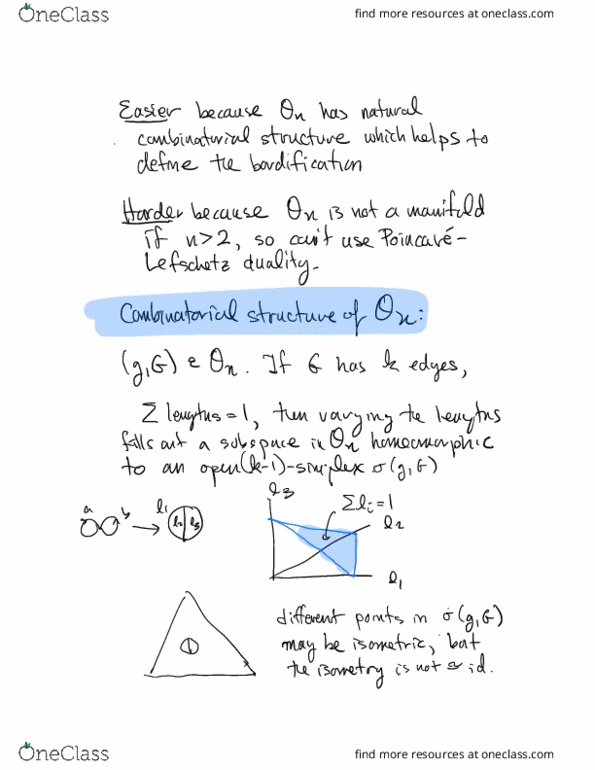 OneClass
find more resources at oneclass.com
Easier because Θn has natural
combinatorial structure which helps to
define the bordification
Harder because Θn is not a manifold
if n>2, so can't use Poincaré-
Lefschetz duality.
Combinatorial structure of Θn:
(g,G) ∈ Θn. If G has k edges,
Σ lengths = 1, then varying the lengths
falls out a subspace in Θn homeomorphic
to an open (k-1)-simplex σ(g,G)
l3
Σli=1
l2
a
b
l1
l2
l3
l1
different points in σ̇(g,G)
may be isometric, but
the isometry is not ≃ id.
OneClass
find more resources at oneclass.com